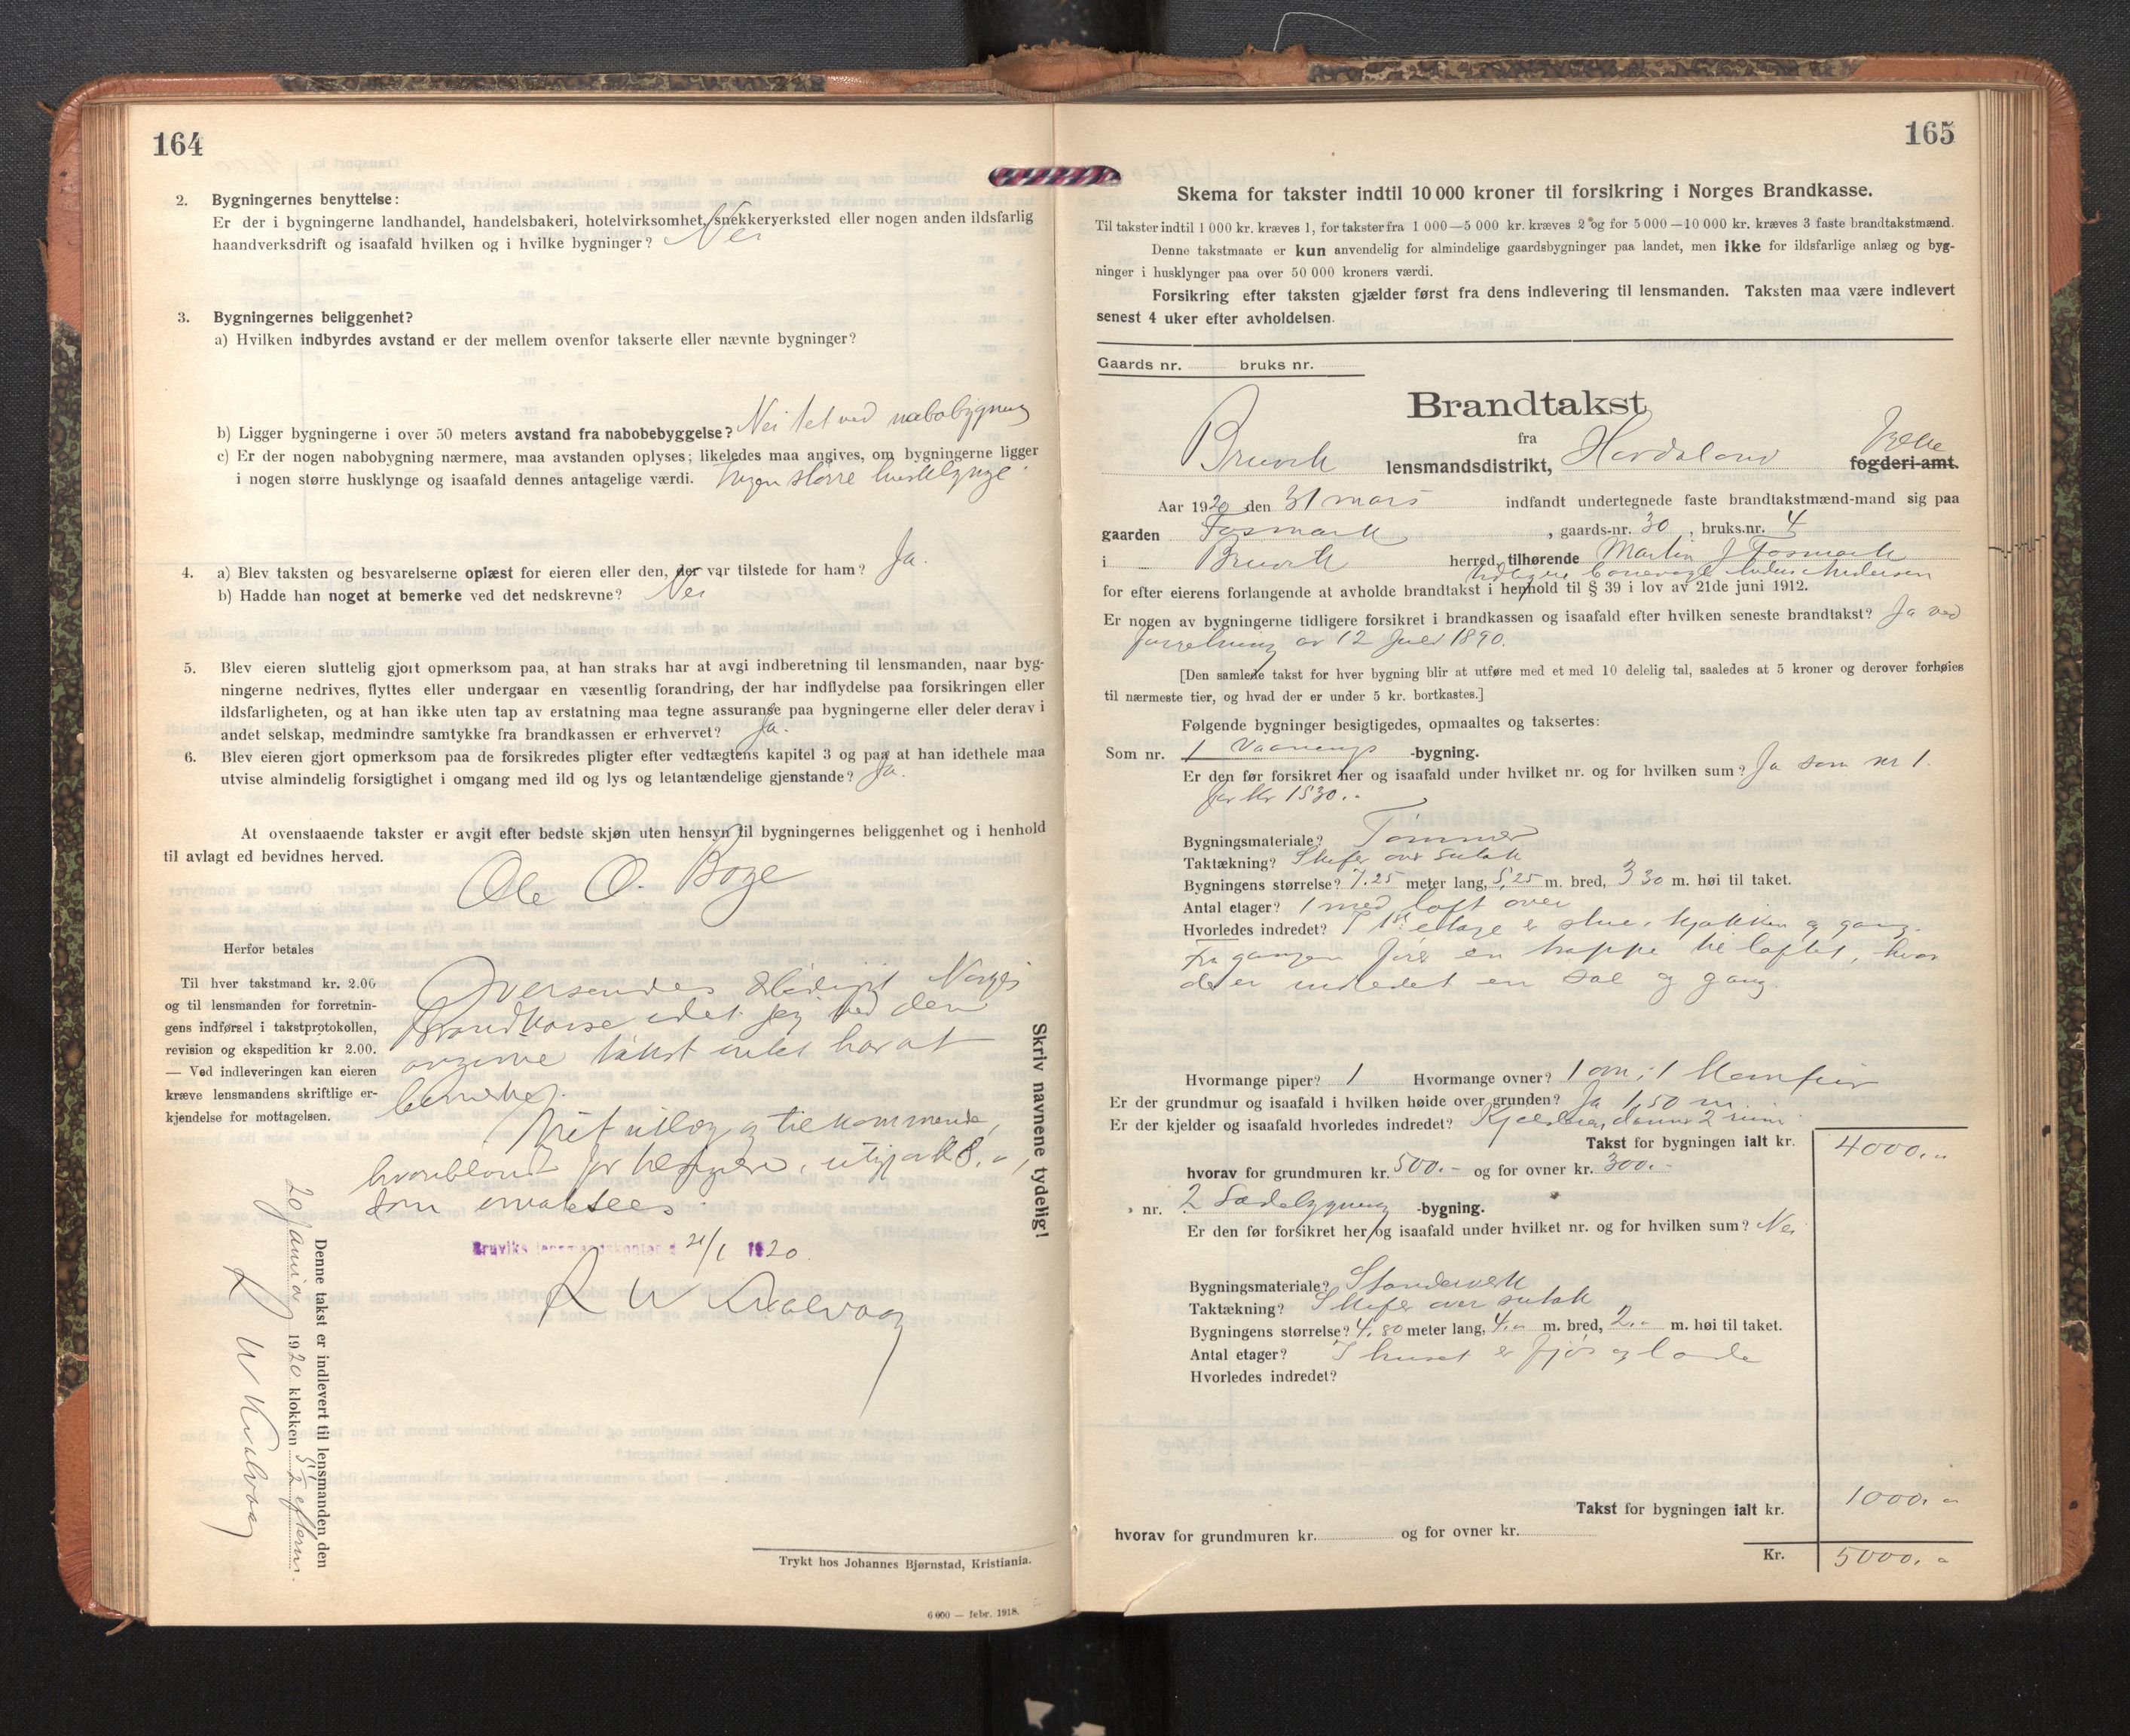 164
2. Bygningernes benyttelse:
Er der i bygningerne landhandel, handelsbakeri, hotelvirksomhet, snekkerverksted eller nogen anden ildsfarlig
haandverksdrift og isaafald hvilken og i hvilke bygninger? Nei
3. Bygningernes beliggenhet?
a) Hvilken indbyrdes avstand er der mellem ovenfor takserte eller nævnte bygninger?
b) Ligger bygningerne i over 50 meters avstand fra nabobebyggelse? Nei tet ved nabobygning
c) Er der nogen nabobygning nærmere, maa avstanden oplyses; likeledes maa angives, om bygningerne ligger
i nogen større husklynge og isaafald dennes antagelige værdi. Ingen större husklynge.
4. a) Blev taksten og besvarelserne oplæst for eieren eller den, der var tilstede for ham? Ja.
b) Hadde han noget at bemerke ved det nedskrevne? Nei
5. Blev eieren sluttelig gjort opmerksom paa, at han straks har at avgi indberetning til lensmanden, naar byg-
ningerne nedrives, flyttes eller undergaar en væsentlig forandring, der har indflydelse paa forsikringen eller
ildsfarligheten, og at han ikke uten tap av erstatning maa tegne assuranse paa bygningerne eller deler derav i
andet selskap, medmindre samtykke fra brandkassen er erhvervet? Ja.
6. Blev eieren gjort opmerksom paa de forsikredes pligter efter vedtægtens kapitel 3 og paa at han idethele maa
utvise almindelig forsigtighet i omgang med ild og lys og letantændelige gjenstande? Ja.
At ovenstaaende takster er avgit efter bedste skjøn uten hensyn til bygningernes beliggenhet og i henhold
til avlagt ed bevidnes herved.
Ole O. Boge
Herfor betales
Til hver takstmand kr. 2.00
og til lensmanden for forretnin-
gens indførsel i takstprotokollen,
revision og ekspedition kr 2.00.
— Ved indleveringen kan eieren
kræve lensmandens skriftlige er-
kjendelse for mottagelsen.
Oversendes Norges
Brandkasse idet jeg ved den
avgivne takst intet har at
bemerke.
Mit utlæg og tilkommende,
hvoriblandt for , utgjør kr 8.-,
som
Bruviks lensmandskontor d 21/1 1920.
R W Kvalvaag
Skriv navnene tydelig!
Denne takst er indlevert til lensmanden den
20 januar 1920 klokken 5½ efterm.
R W Kvalvaag
Trykt hos Johannes Bjørnstad, Kristiania.
6 000 — febr. 1918.
165
Skema for takster indtil 10 000 kroner til forsikring i Norges Brandkasse.
Til takster indtil 1 000 kr. kræves 1, for takster fra 1 000—5 000 kr. kræves 2 og for 5 000—10 000 kr. kræves 3 faste brandtakstmænd.
Denne takstmaate er kun anvendelig for almindelige gaardsbygninger paa landet, men ikke for ildsfarlige anlæg og byg-
ninger i husklynger paa over 50 000 kroners værdi.
Forsikring efter taksten gjælder først fra dens indlevering til lensmanden. Taksten maa være indlevert
senest 4 uker efter avholdelsen.
Gaards nr. bruks nr.
Brandtakst
fra
Bruvik lensmandsdistrikt, Hordaland fylke fogderi-amt.
Aar 1920 den 31 mars indfandt undertegnede faste brandtakstmænd-mand sig paa
gaarden Fosmark, gaards-nr. 30, bruks.nr. 4
i Bruvik herred, tilhørende Martin J Fosmark
Anders Andersen
for efter eierens forlangende at avholde brandtakst i henhold til § 39 i lov av 21de juni 1912.
Er nogen av bygningerne tidligere forsikret i brandkassen og isaafald efter hvilken seneste brandtakst? Ja ved
forretning av 12 Juli 1890.
[Den samlede takst for hver bygning blir at utføre med et med 10 delelig tal, saaledes at 5 kroner og derover forhøies
til nærmeste tier, og hvad der er under 5 kr. bortkastes.]
Følgende bygninger besigtigedes, opmaaltes og taksertes:
Som nr. 1 Vaanings -bygning.
Er den før forsikret her og isaafald under hvilket nr. og for hvilken sum? Ja som nr 1.
for kr 1530.-
Bygningsmateriale? Tømmer
Taktækning? Skifer over sutak
Bygningens størrelse? 7.25 meter lang, 5,25 m. bred, 3 30 m. høi til taket.
Antal etager? 1 med loft over
Hvorledes indredet? I 1st etage er stue, kjøkken og gang.
Fra gangen fører en trappe til loftet, hvor
der er indredet en sal og gang.
Hvormange piper? 1 Hvormange ovner? 1 ovn, 1 komfur
Er der grundmur og isaafald i hvilken høide over grunden? Ja 1,50 m
Er der kjelder og isaafald hvorledes indredet? Kjelderen danner 2 rum
Takst for bygningen ialt kr. 4000.-
hvorav for grundmuren kr. 500.- og for ovner kr. 300.-
» nr. 2 Ladebygning -bygning.
Er den før forsikret her og isaafald under hvilket nr. og for hvilken sum? Nei
Bygningsmateriale? Standerverk
Taktækning? Skifer over sutak
Bygningens størrelse? 4.80 meter lang, 4.- m. bred, 2.- m. høi til taket.
Antal etager? I huset er fjøs og lade
Hvorledes indredet?
Takst for bygningen ialt kr. 1000.-
hvorav for grundmuren kr. og for ovner kr.
Kr. 5000.-